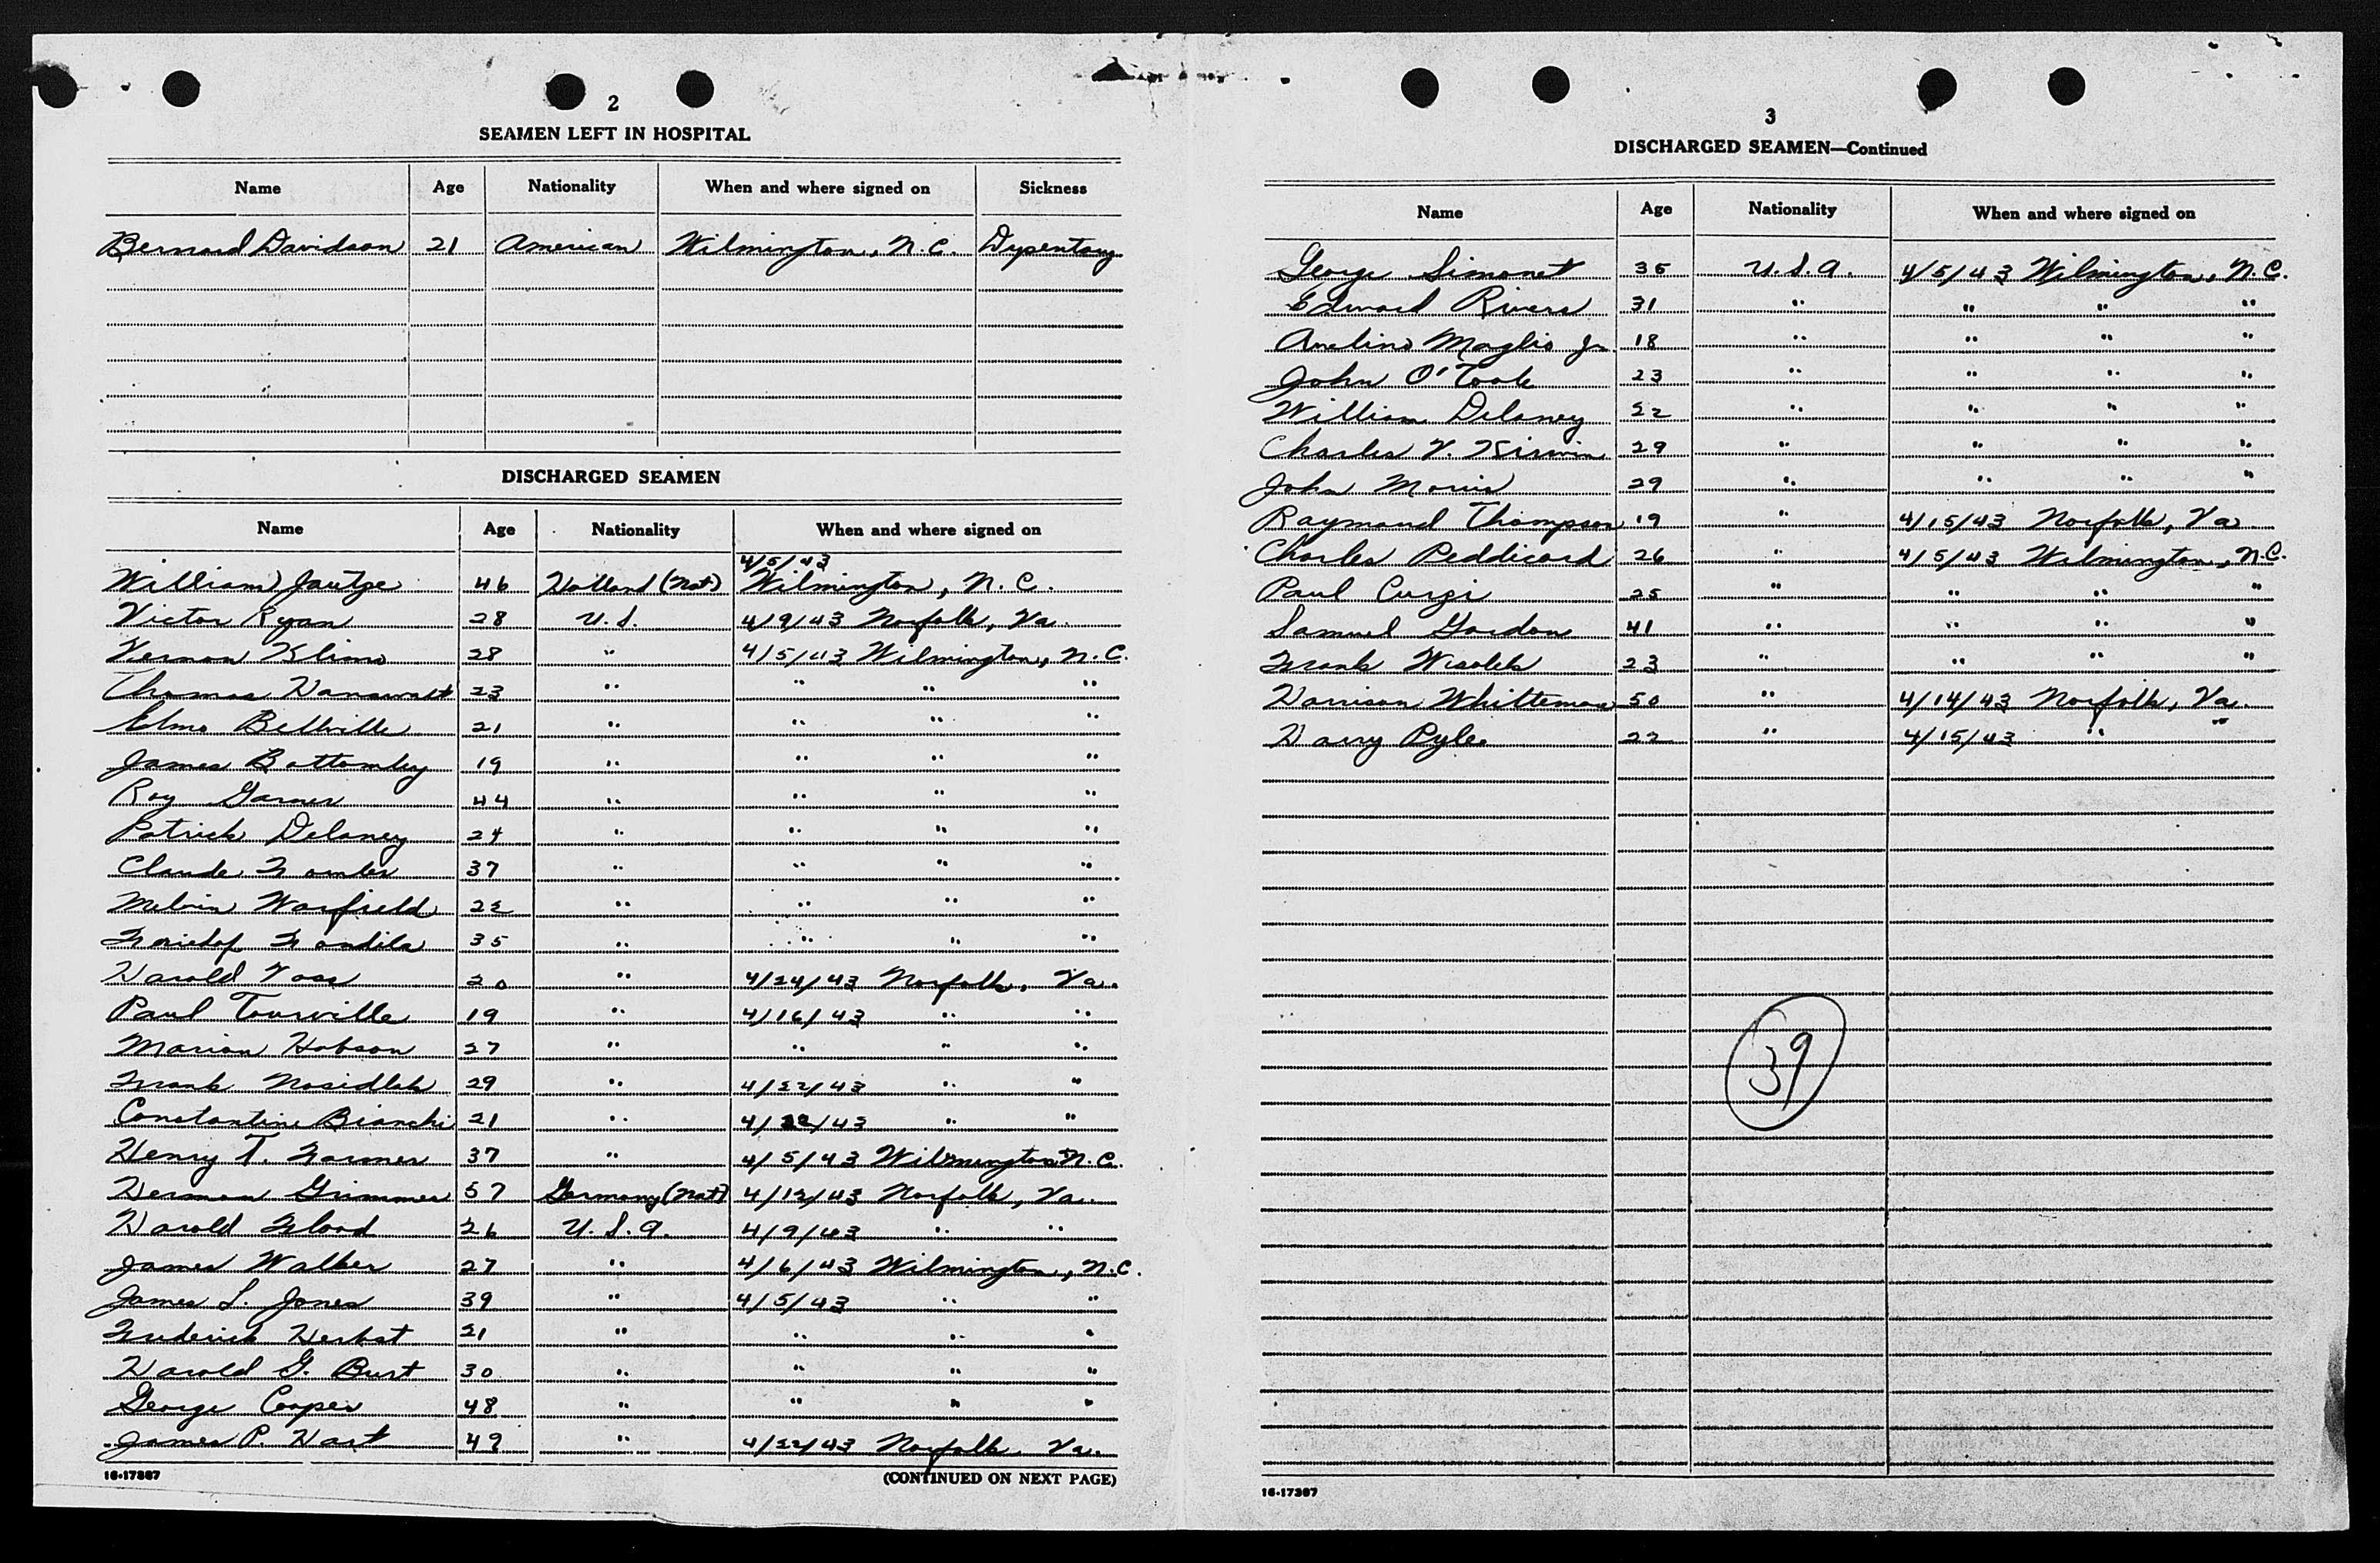 2
SEAMEN LEFT IN HOSPITAL
Name Age Nationality When and where signed on Sickness
Bernard Davidson 21 American Wilmington, N.C. Dysentary
DISCHARGED SEAMEN
Name Age Nationality When and where signed on
4/5/43
William Jautze 46 Holland (Nat) Wilmington, N.C.
Victor Ryan 28 U.S. 4/9/43 Norfolk, Va.
Vernon Klimo 28 " 4/5/43 Wilmington, N.C.
Thomas Hanawalt 23 " " " "
Elmo Bellville 21 " " " "
James Bottomley 19 " " " "
Roy Garner 44 " " " "
Patrick Delaney 24 " " " "
Claude 37 " " " "
Melvin Warfield 22 " " " "
35 " " " "
Harold Voss 20 " 4/24/43 Norfolk, Va.
Paul Tourville 19 " 4/16/43 " "
Marion Hobson 27 " " " "
Frank Nosidlak 29 " 4/22/43 " "
Constantine Bianchi 21 " 4/22/43 " "
Henry T. Farmer 37 " 4/5/43 Wilmington N.C.
Herman Grimmer 57 Germany (Nat) 4/12/43 Norfolk, Va.
Harold Flood 26 U.S.A. 4/9/43 " "
James Walker 27 " 4/6/43 Wilmington, N.C.
James L. Jones 39 " 4/5/43 " "
Frederick Herbst 21 " " " "
Harold G. Burt 30 " " " "
George Cooper 48 " " " "
James P. Hart 49 " 4/22/43 Norfolk, Va.
16-17367 (CONTINUED ON NEXT PAGE)
3
DISCHARGED SEAMEN—Continued
Name Age Nationality When and where signed on
George Simonet 36 U.S.A. 4/5/43 Wilmington, N.C.
Edward Rivers 31 " " " "
Avelino Maglio Jr. 18 " " " "
John O'Toole 23 " " " "
William Delaney 22 " " " "
Charles V. Kirwin 29 " " " "
John Morris 29 " " " "
Raymond Thompson 19 " 4/15/43 Norfolk, Va
Charles Peddicord 26 " 4/5/43 Wilmington, N.C.
Paul Curgi 25 " " " "
Samuel Gordon 41 " " " "
Frank Wisolek 23 " " " "
Harrison Whittemore 50 " 4/14/43 Norfolk, Va.
Harry Pyle 22 " 4/15/43 " "
39
16-17367